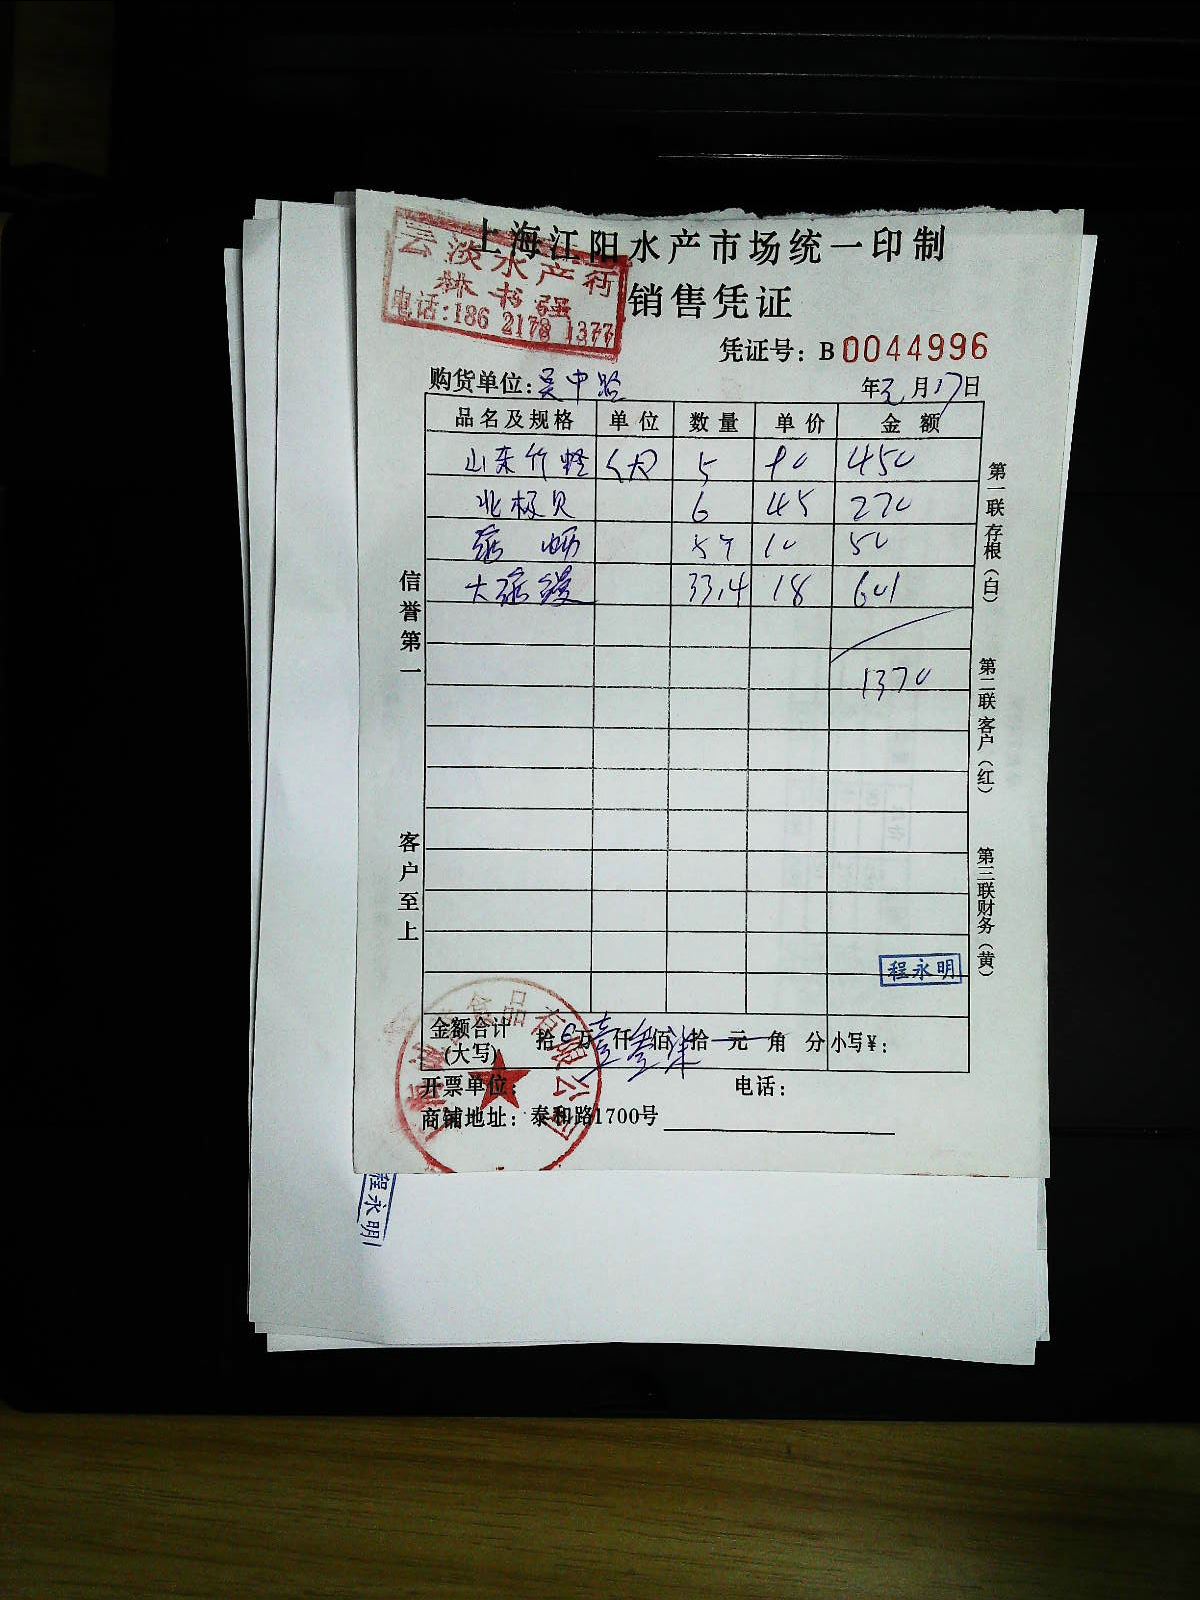 上海江阳水产市场统一印制
云淡水产行
林书强
电话:186 2178 1377
销售凭证
凭证号: B 0044996
购货单位: 吴中路 年 元 月 17 日
品名及规格 单位 数量 单价 金额
山东竹蛏 (大) 5 90 450
北极贝 6 45 270
50
33.4 18 601
1370
信誉第一
客户至上
第一联存根(白)
第二联客户(红)
第三联财务(黄)
程永明
金额合计(大写) 拾 万 壹 仟 叁 佰 柒 拾 元 角 分 小写¥:
食品有限公司
开票单位: 电话:
商铺地址: 泰和路1700号
程永明